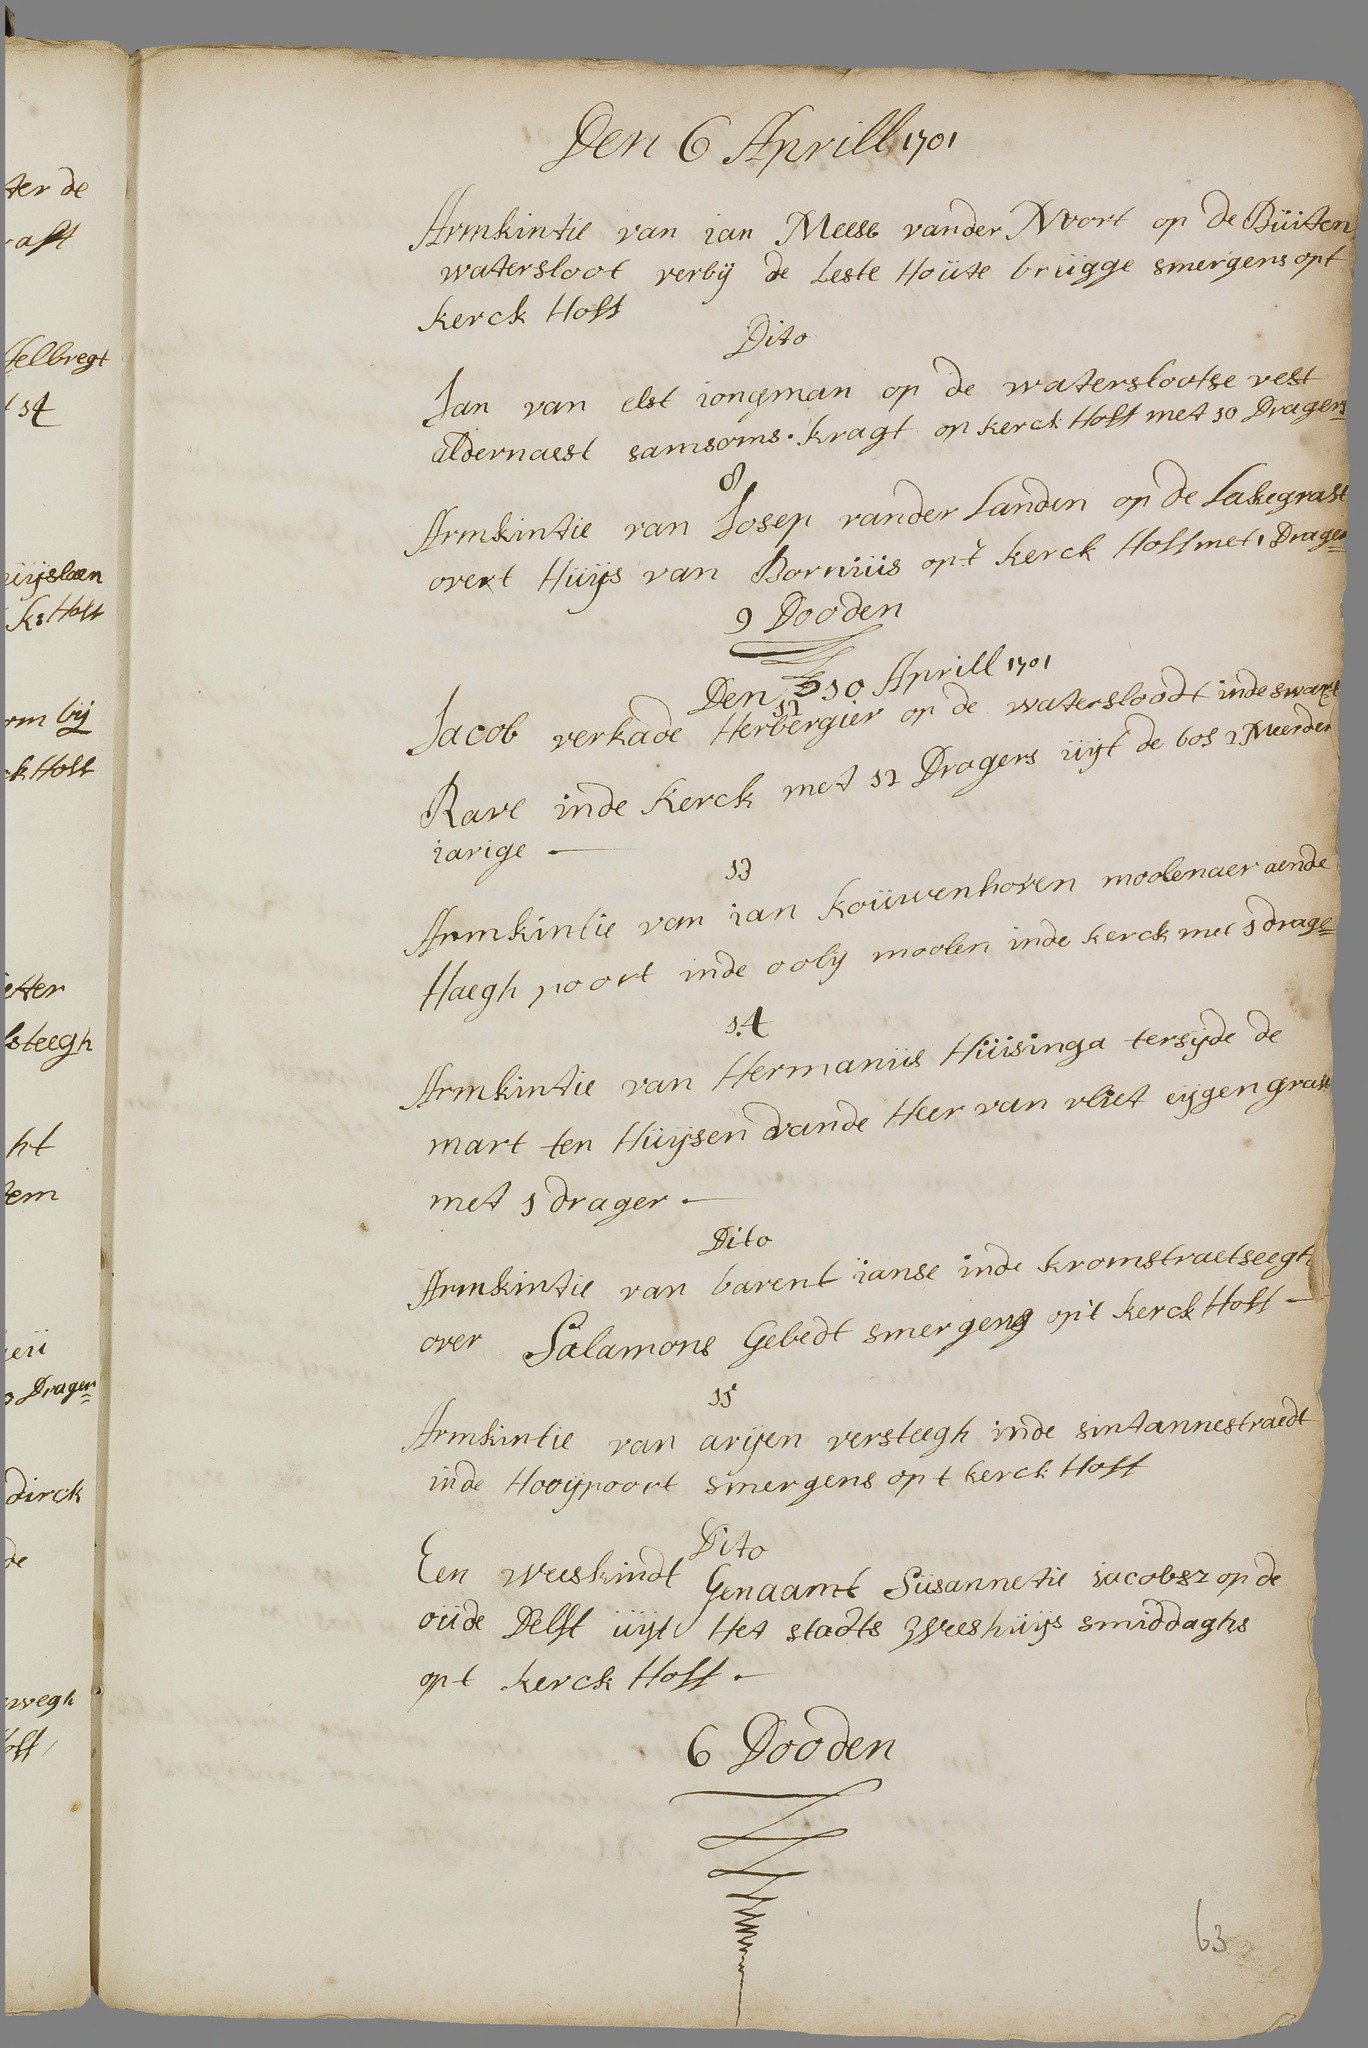 ter de
raft
felbregt
t 14
uijslaen
ks Hoff
orm bij
ck Hoff
etter
lsteegh
ht
tem
ieu
0 Dragers
dirck
de
rwegh
off
Den 6 Aprill 1701
Armkintie van ian Meese vander Noort op de Buiten
watersloot verbij de Leste Houte brugge smergens opt
Kerck Hoff
Dito
Jan van elst iongman op de waterslootse vest
aldernaest samsoms kragt op kerck Hoff met 10 Dragers
8
Armkintie van Josep vander Landen op de Lakegraft
overt Huijs van Bornius op t kerck Hoff met 1 Drager
9 Dooden
Den 10 Aprill 1701
12
Jacob verkade Herbergier op de watersloodt inde swarte
Rave inde Kerck met 12 Dragers uijt de bos 2 Meerder
iarige —
13
Armkintie van ian Kouwenhoven moolenaer aende
Haegh poort inde oolij moolen inde kerck met 1 drage
14
Armkintie van Hermanus Huisinga tersijde de
mart ten Huijsen vande Heer van vliet eijgen graff
met 1 drager —
Dito
Armkintie van barent ianse inde kromstraetseegh
over Salamons Gebedt smergens opt kerck Hoff —
15
Armkintie van arijen versteegh inde sintannestraedt
inde Hooijpoort smergens op t kerck Hoff
Dito
Een weeskindt Genaamt Susannetie iacobsz op de
oude Delft uijt Het stadts Weeshuijs smiddaghs
opt kerck Hoff —
6 Dooden
63